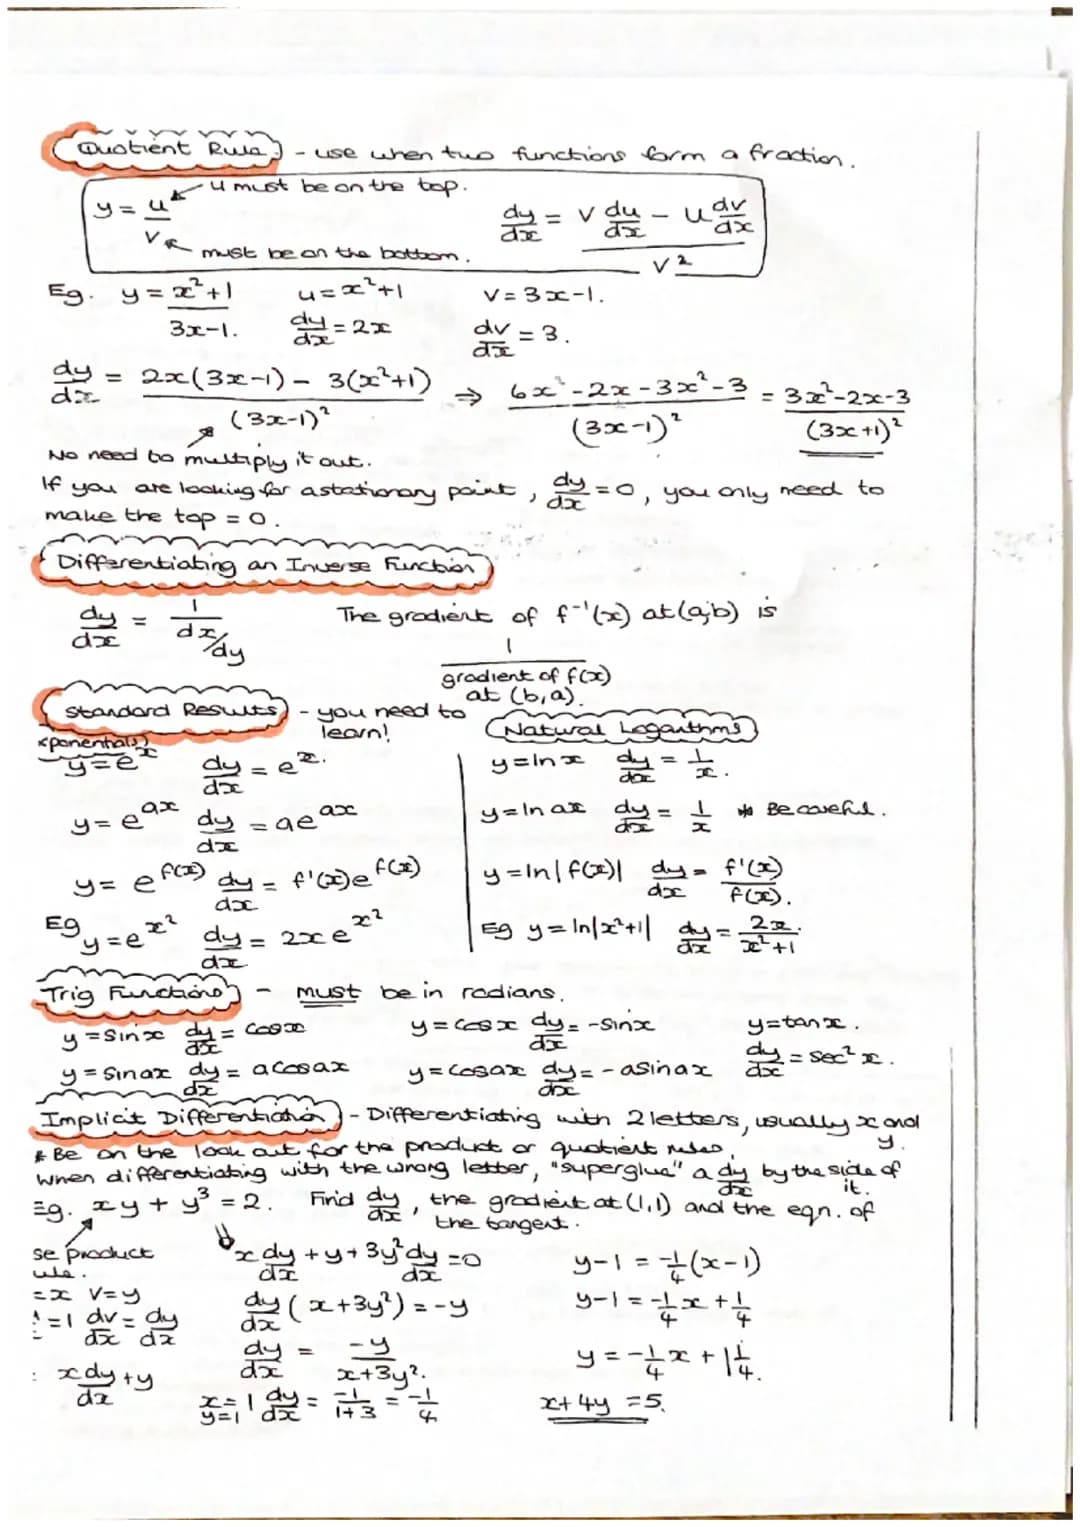 Quotient Rule - use when two functions form a fraction.
u must be on the top.
y = u/v
dy/dx = (v du/dx - u dv/dx)/v²
must be on the bottom.
Eg. y = (x²+1)/(3x-1). u = x²+1 v = 3x-1.
dy/dx = 2x dv/dx = 3.
dy/dx = (2x(3x-1) - 3(x²+1))/(3x-1)² ⇒ (6x²-2x-3x²-3)/(3x-1)² = (3x²-2x-3)/(3x+1)²
No need to multiply it out.
If you are looking for a stationary point, dy/dx = 0, you only need to
make the top = 0.
Differentiating an Inverse Function
dy/dx = 1/(dx/dy) The gradient of f⁻¹(x) at (a,b) is
1/(gradient of f(x) at (b,a).)
Standard Results - you need to learn!
xponentials)
y = e^x dy/dx = e^x.
y = e^ax dy/dx = ae^ax
y = e^f(x) dy/dx = f'(x)e^f(x)
Eg y = e^x² dy/dx = 2xe^x²
Natural Logarithms
y = ln x dy/dx = 1/x.
y = ln ax dy/dx = 1/x * Be careful.
y = ln|f(x)| dy/dx = f'(x)/f(x).
Eg y = ln|x²+1| dy/dx = 2x/(x²+1).
Trig Functions - must be in radians.
y = sinx dy/dx = cosx y = cosx dy/dx = -sinx y = tanx.
y = sinax dy/dx = acosax y = cosax dy/dx = -asinax dy/dx = sec²x.
Implicit Differentiation - Differentiating with 2 letters, usually x and y.
* Be on the look out for the product or quotient rules.
When differentiating with the wrong letter, "superglue" a dy/dx by the side of it.
Eg. xy + y³ = 2. Find dy/dx, the gradient at (1,1) and the eqn. of
the tangent.
se product
ule.
= x v = y
= 1 dv/dx = dy/dx
: x dy/dx + y
x dy/dx + y + 3y² dy/dx = 0
dy/dx (x+3y²) = -y
dy/dx = -y/(x+3y²).
x=1 y=1 dy/dx = -1/(1+3) = -1/4
y-1 = -1/4(x-1)
y-1 = -1/4 x + 1/4
y = -1/4 x + 1 1/4.
x+4y = 5.